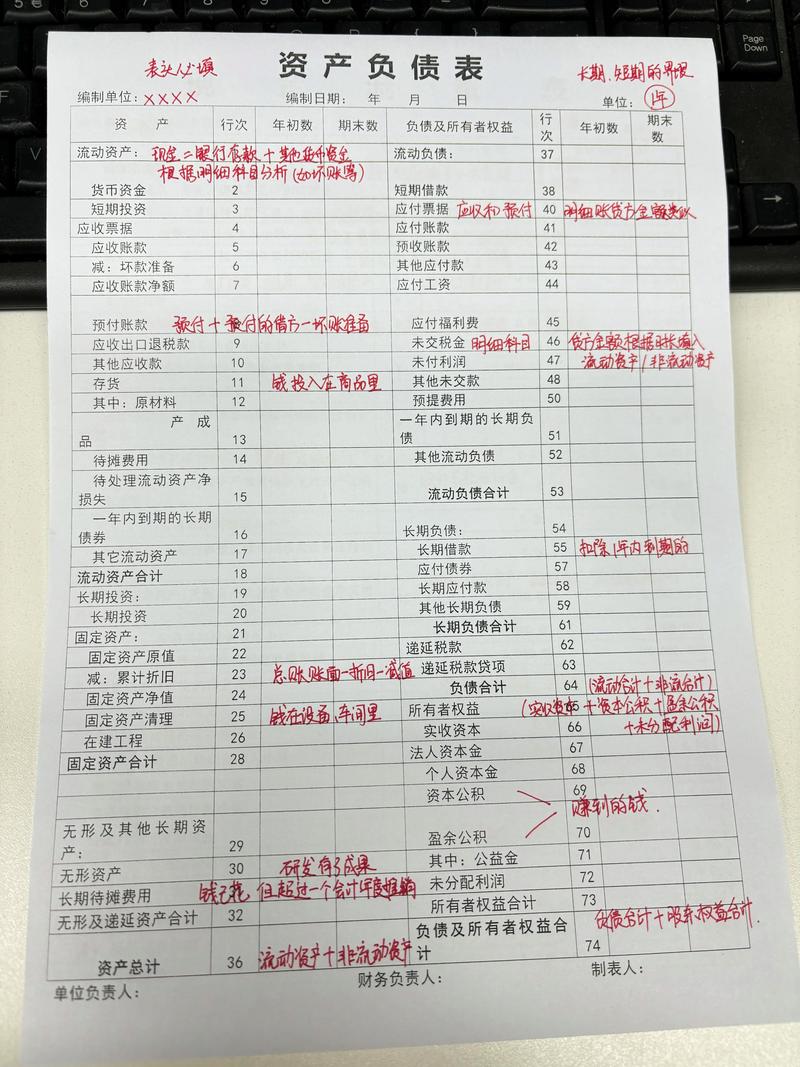 Page
Down
表头必填
资产负债表
长期、短期的界限
编制单位: XXXX 编制日期: 年 月 日 单位: 1年
资 产 行次 年初数 期末数 负债及所有者权益 行次 年初数 期末数
流动资产: 现金=银行存款+其他货币资金 流动负债: 37
根据明细科目分析(如坏账等)
货币资金 2 短期借款 38
短期投资 3 应付票据 应收和预付 40 明细账贷方金额
应收票据 4 应付账款 41
应收账款 5 预收账款 42
减: 坏款准备 6 其他应付款 43
应收账款净额 7 应付工资 44
预付账款 预付+预付的借方-坏账准备 应付福利费 45
应收出口退税款 9 未交税金 明细科目 46 贷方金额根据时长填入
其他应收款 10 未付利润 47 流动资产/非流动资产
存货 11 钱投入在商品里 其他未交款 48
其中: 原材料 12 预提费用 50
产成品 13 一年内到期的长期负债 51
待摊费用 14 其他流动负债 52
待处理流动资产净损失 15 流动负债合计 53
一年内到期的长期债券 16 长期负债: 54
其它流动资产 17 长期借款 55 扣除1年内到期的
流动资产合计 18 应付债券 57
长期投资: 19 长期应付款 58
长期投资 20 其他长期负债 59
固定资产: 21 长期负债合计 61
固定资产原值 22 递延税款 62
减: 累计折旧 23 总账账面-折旧-减值 递延税款贷项 63
固定资产净值 24 负债合计 64 (流动合计+非流合计)
固定资产清理 25 钱在设备、车间里 所有者权益 65 (实收资本+资本公积+盈余公积
在建工程 26 实收资本 66 +未分配利润)
固定资产合计 28 法人资本金 67
个人资本金 68
资本公积 69
赚到的钱.
无形及其他长期资产: 29 盈余公积 70
无形资产 30 研发有了成果 其中: 公益金 71
长期待摊费用 钱已花 但超过一个会计年度摊销 未分配利润 72
无形及递延资产合计 32 所有者权益合计 73
资产总计 36 流动资产+非流动资产 负债及所有者权益合计 74 负债合计+股东权益合计.
单位负责人: 财务负责人: 制表人: